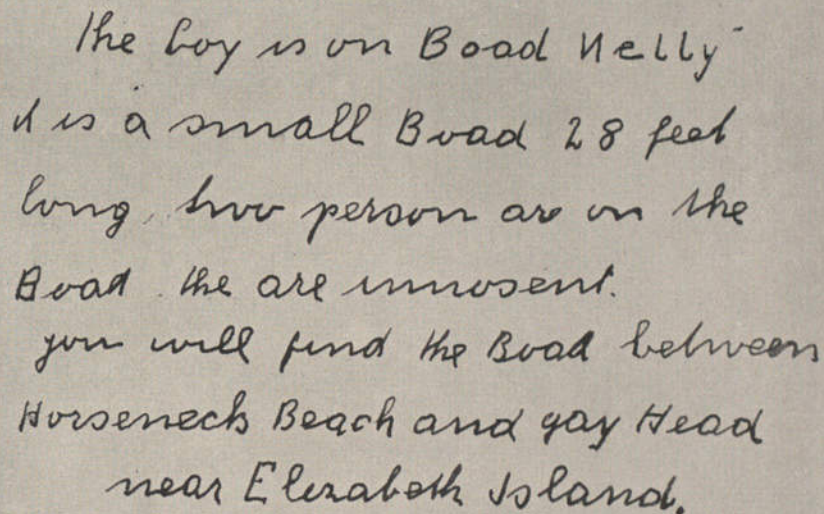 the boy is on Boad Nelly
it is a small Boad 28 feet
long, two person are on the
Boad. the are innosent.
you will find the Boad between
Horseneck Beach and gay Head
near Elizabeth Island.